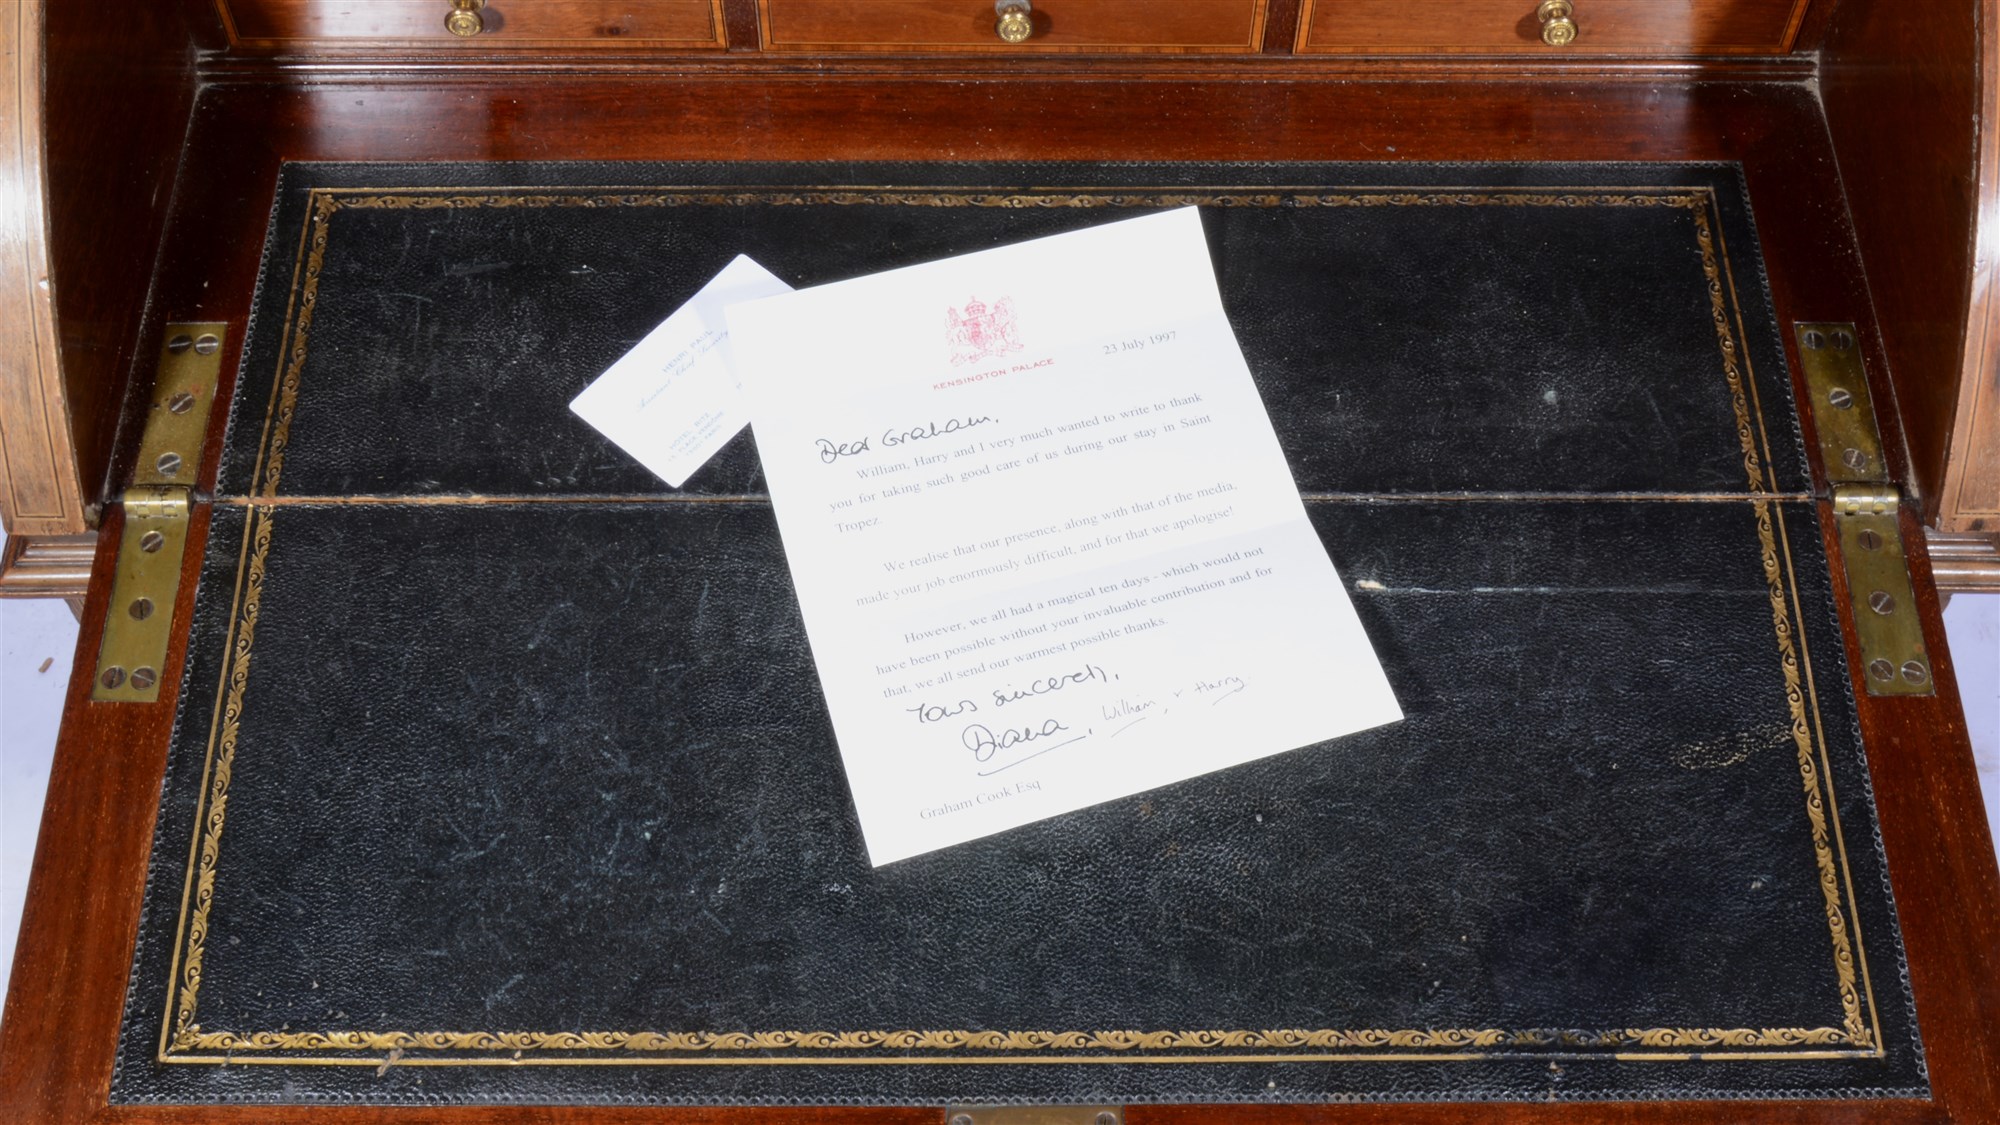 HENRI PAUL
Assistant Chief Security
HOTEL RITZ
15, PLACE VENDOME
KENSINGTON PALACE
23 July 1997
Dear Graham,
William, Harry and I very much wanted to write to thank
you for taking such good care of us during our stay in Saint
Tropez.
We realise that our presence, along with that of the media,
made your job enormously difficult, and for that we apologise!
However, we all had a magical ten days - which would not
have been possible without your invaluable contribution and for
that, we all send our warmest possible thanks.
Yours sincerely,
Diana, William, + Harry.
Graham Cook Esq